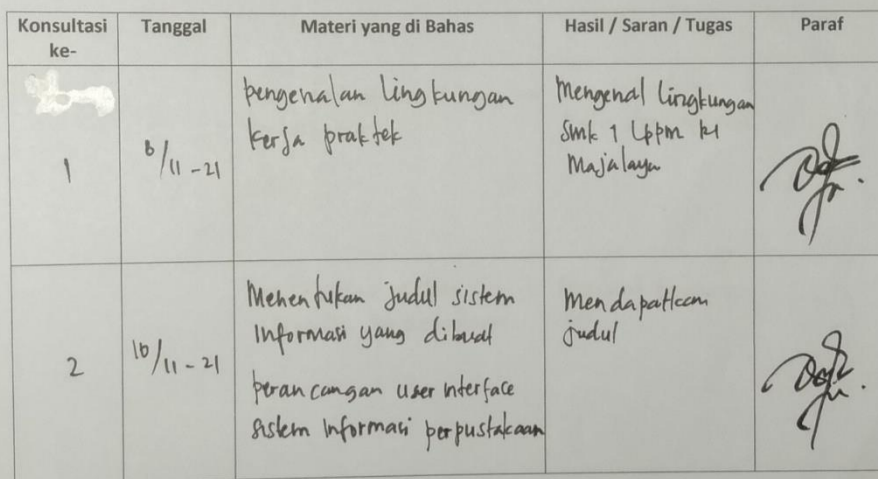 Konsultasi ke-
Tanggal
Materi yang di Bahas
Hasil / Saran / Tugas
Paraf
1
8/11-21
pengenalan lingkungan
kerja praktek
Mengenal lingkungan
Smk 1 Lppm RI
Majalaya
2
10/11-21
Menentukan judul sistem
informasi yang dibuat
perancangan user interface
sistem informasi perpustakaan
Mendapatkan
judul